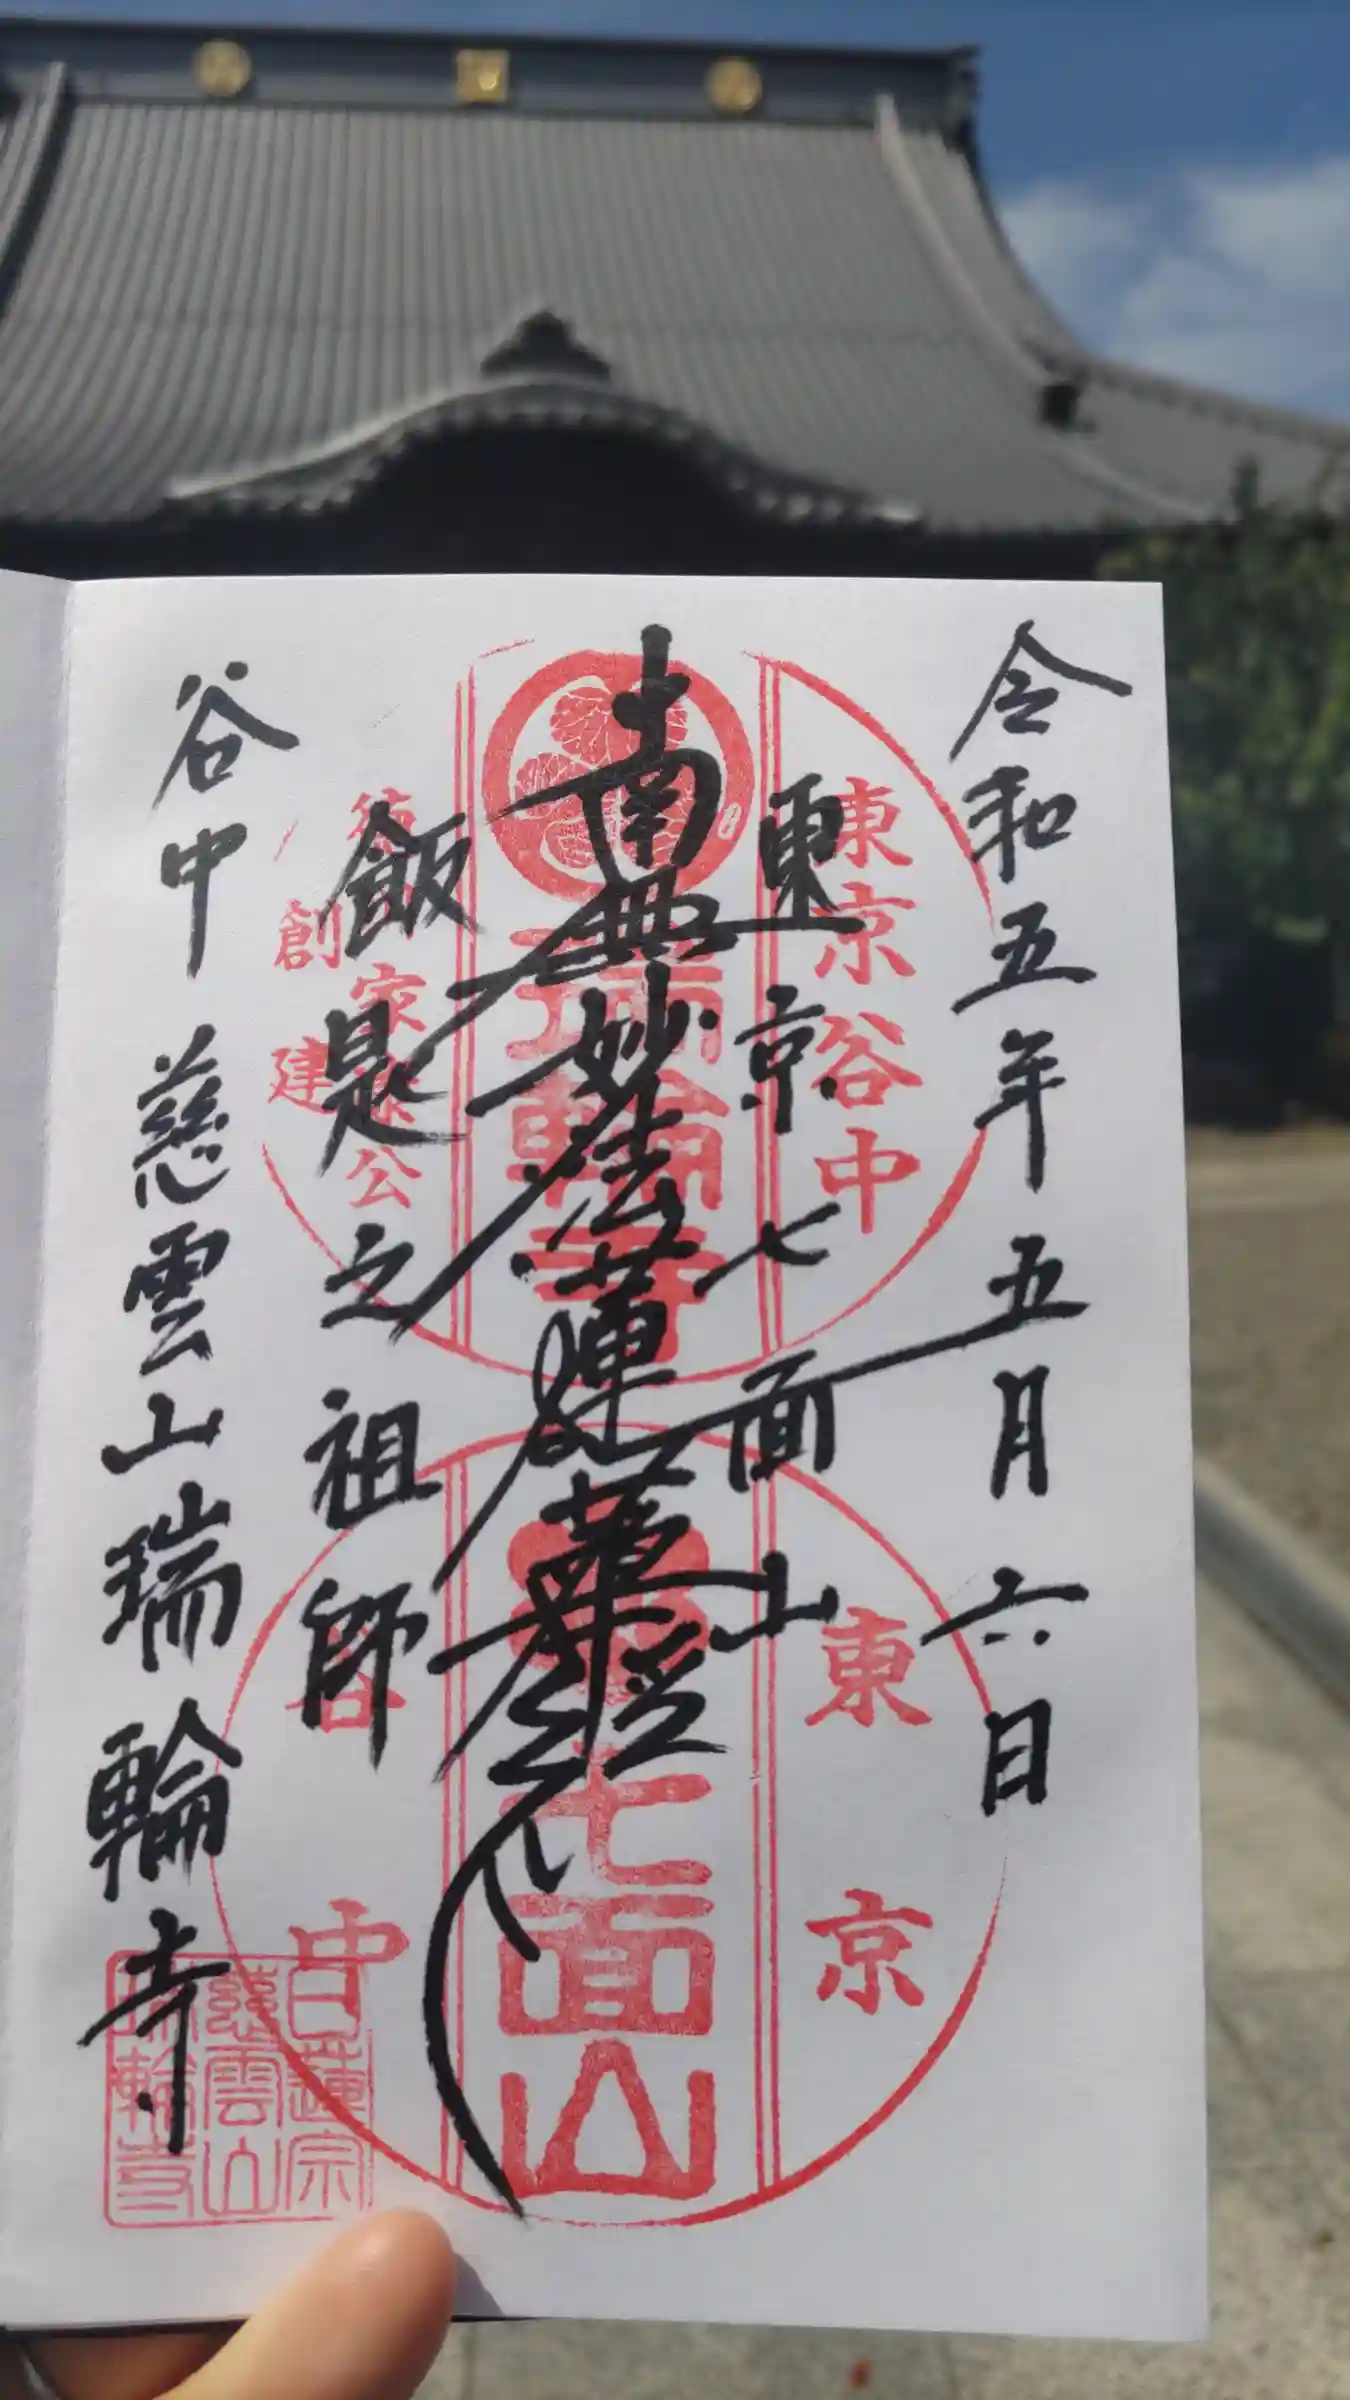 令和五年五月六日
東京七面山
南無妙法蓮華経
飯是之祖師
谷中 慈雲山瑞輪寺
東京谷中
瑞輪寺
家康公
創建
東京
七面山
谷中
日蓮宗
慈雲山
瑞輪寺